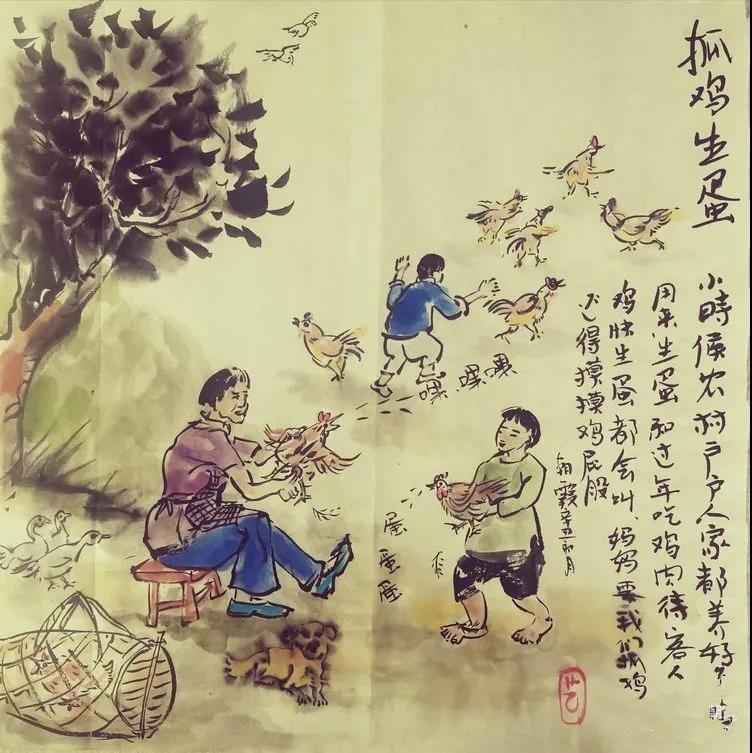 抓鸡生蛋
小時候农村户户人家都养好
用来生蛋和过年吃鸡肉待客人
鸡快生蛋都会叫、妈妈要我们抓鸡
还得摸摸鸡屁股
霞辛丑
嘿、嘿、嘿
蛋
蛋
蛋
艺